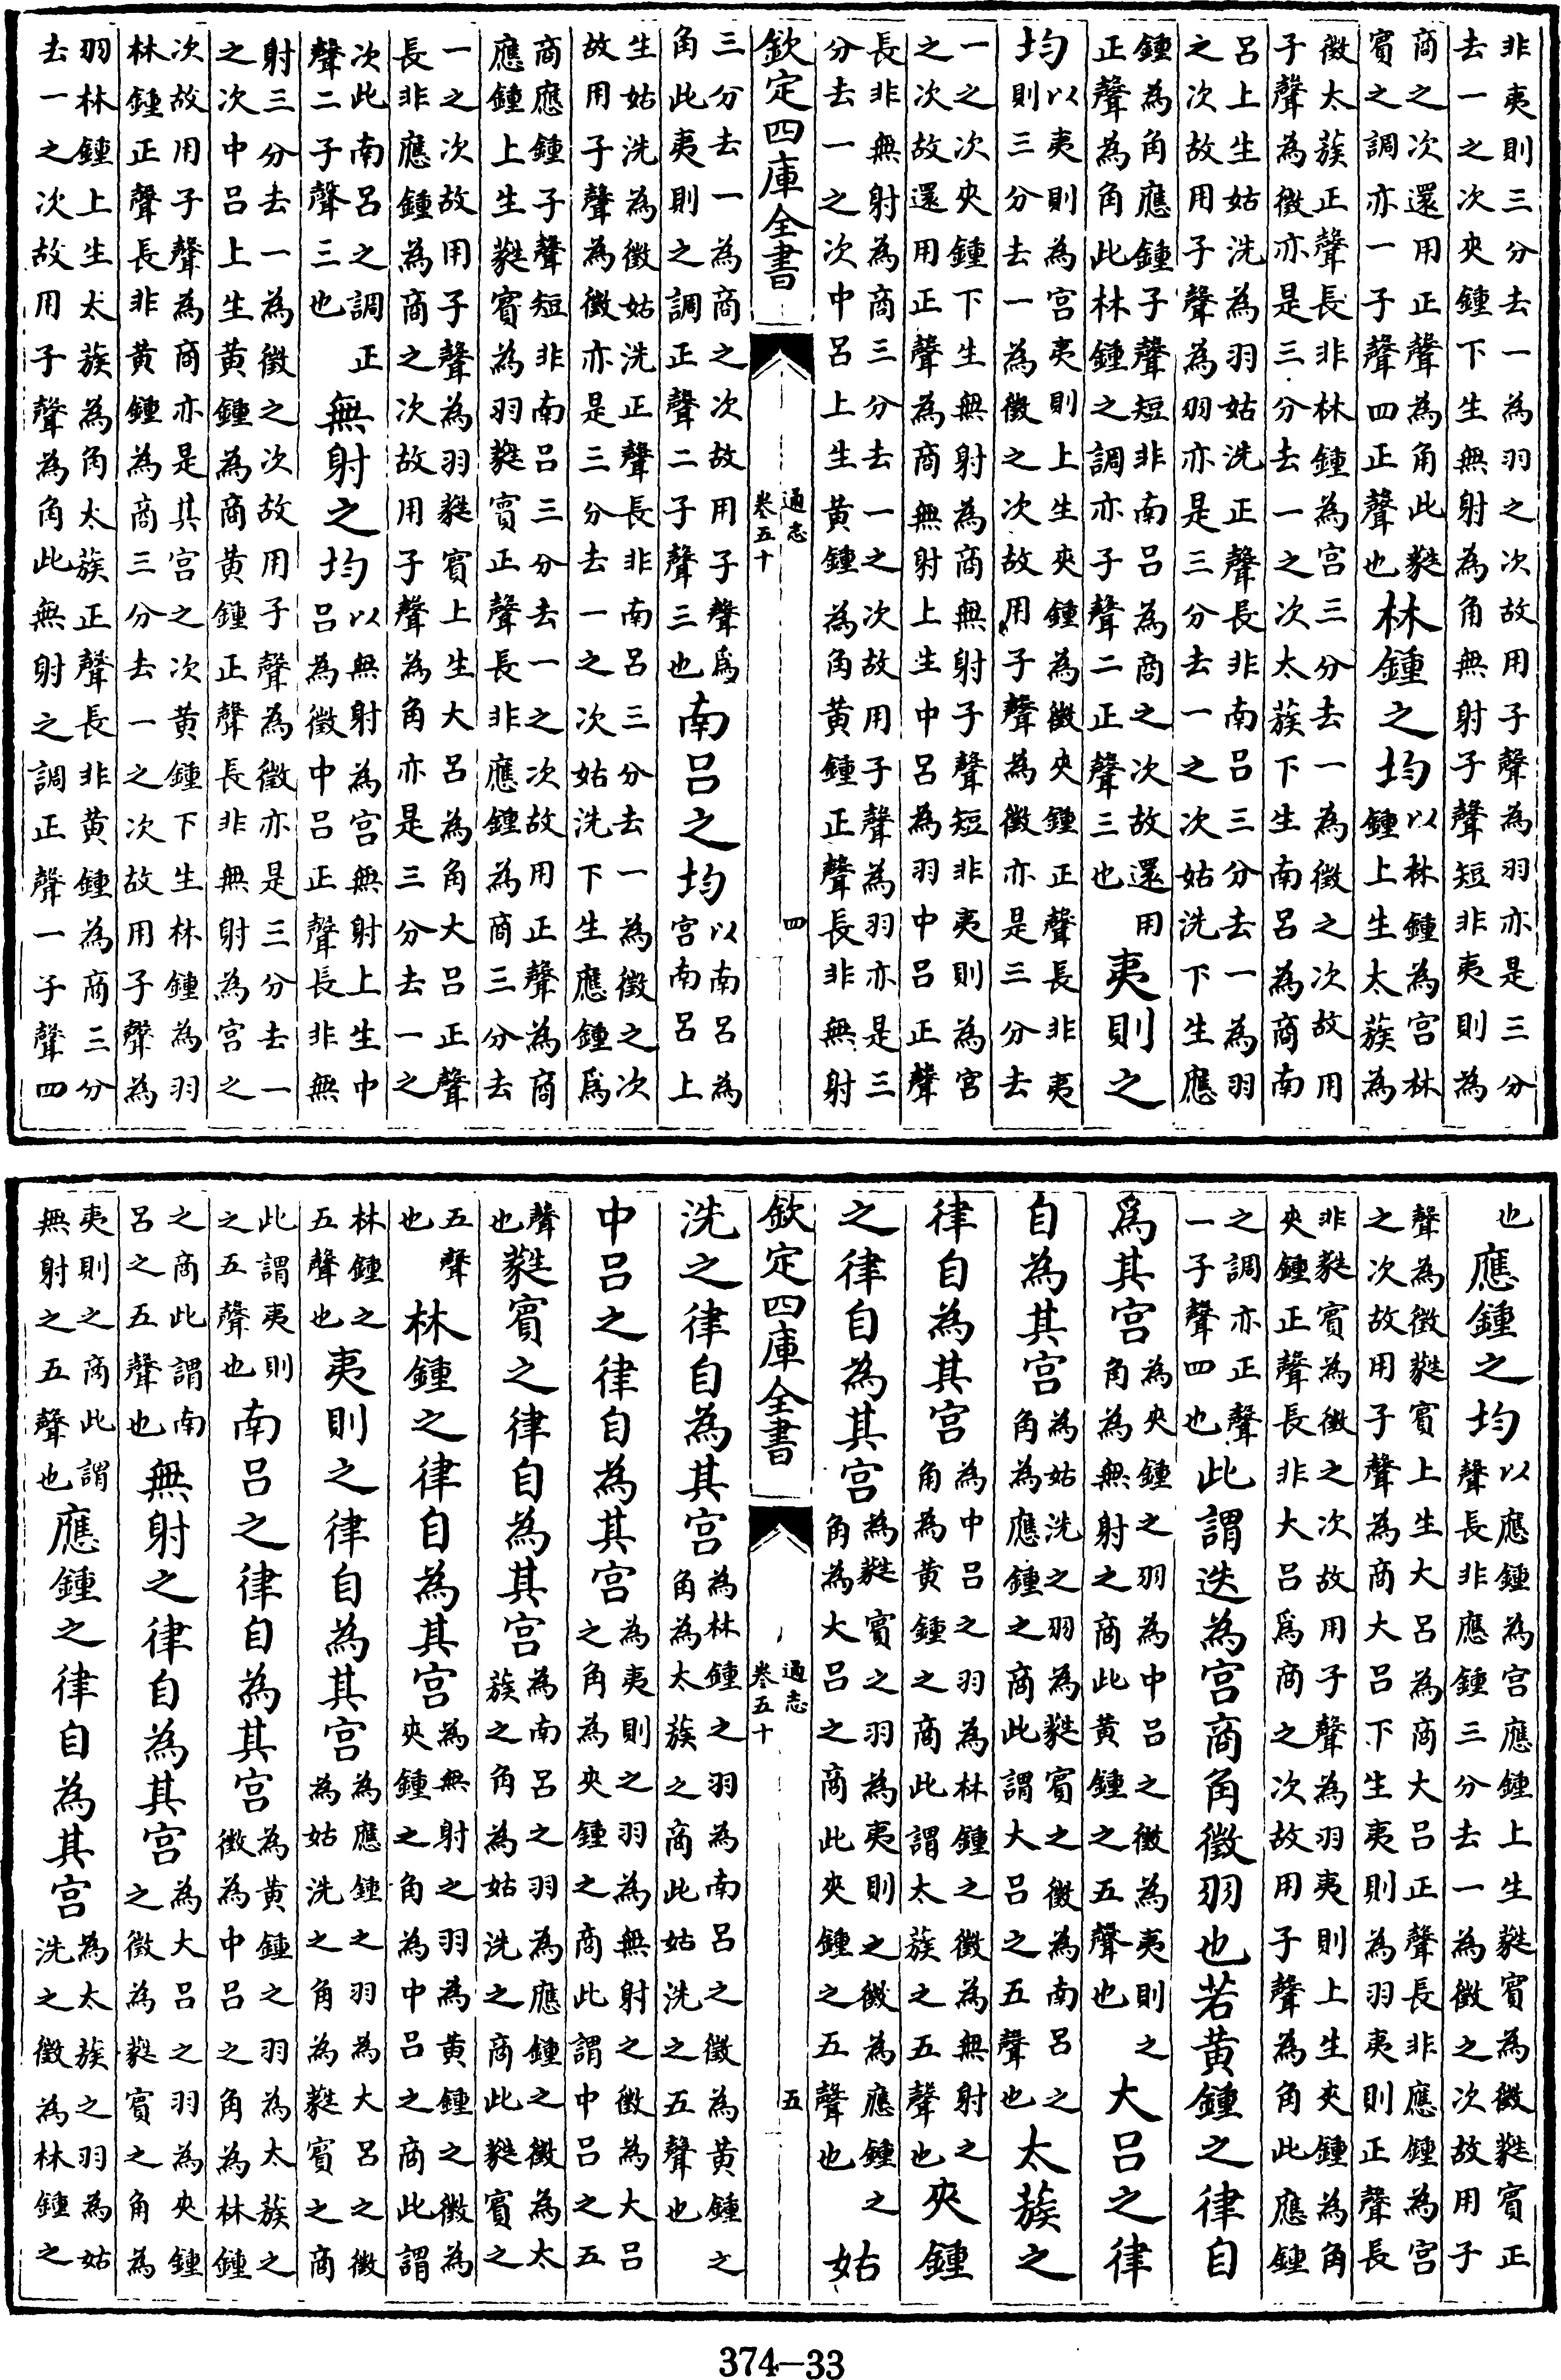 非夷則三分去一為羽之次故用子聲為羽亦是三分
去一之次夾鍾下生無射為角無射子聲短非夷則為
商之次還用正聲為角此蕤
賓之調亦一子聲四正聲也
林鍾之均
以林鍾為宮林
鍾上生太蔟為
徵太蔟正聲長非林鍾為宮三分去一為徵之次故用
子聲為徵亦是三分去一之次太蔟下生南呂為商南
呂上生姑洗為羽姑洗正聲長非南呂三分去一為羽
之次故用子聲為羽亦是三分去一之次姑洗下生應
鍾為角應鍾子聲短非南呂為商之次故還用
正聲為角此林鍾之調亦子聲二正聲三也
夷則之
均
以夷則為宮夷則上生夾鍾為徵夾鍾正聲長非夷
則三分去一為徵之次故用子聲為徵亦是三分去
一之次夾鍾下生無射為商無射子聲短非夷則為宮
之次故還用正聲為商無射上生中呂為羽中呂正聲
長非無射為商三分去一之次故用子聲為羽亦是三
分去一之次中呂上生黄鍾為角黄鍾正聲長非無射
欽定四庫全書
通志
卷五十
四
三分去一為商之次故用子聲爲
角此夷則之調正聲二子聲三也
南呂之均
以南呂為
宮南呂上
生姑洗為徵姑洗正聲長非南呂三分去一為徵之次
故用子聲為徵亦是三分去一之次姑洗下生應鍾爲
商應鍾子聲短非南呂三分去一之次故用正聲為商
應鍾上生蕤賓為羽蕤賓正聲長非應鍾為商三分去
一之次故用子聲為羽蕤賓上生大呂為角大呂正聲
長非應鍾為商之次故用子聲為角亦是三分去一之
次此南呂之調正
聲二子聲三也
無射之均
以無射為宮無射上生中
呂為徵中呂正聲長非無
射三分去一為徵之次故用子聲為徵亦是三分去一
之次中呂上生黄鍾為商黄鍾正聲長非無射為宮之
次故用子聲為商亦是其宮之次黄鍾下生林鍾為羽
林鍾正聲長非黄鍾為商三分去一之次故用子聲為
羽林鍾上生太蔟為角太蔟正聲長非黄鍾為商三分
去一之次故用子聲為角此無射之調正聲一子聲四
也
應鍾之均
以應鍾為宮應鍾上生蕤賓為徵蕤賓正
聲長非應鍾三分去一為徵之次故用子
聲為徵蕤賓上生大呂為商大呂正聲長非應鍾為宮
之次故用子聲為商大呂下生夷則為羽夷則正聲長
非蕤賓為徵之次故用子聲為羽夷則上生夾鍾為角
夾鍾正聲長非大呂爲商之次故用子聲為角此應鍾
之調亦正聲
一子聲四也
此謂迭為宮商角徵羽也若黄鍾之律自
爲其宮
為夾鍾之羽為中呂之徵為夷則之
角為無射之商此黄鍾之五聲也
大呂之律
自為其宮
為姑洗之羽為蕤賓之徵為南呂之
角為應鍾之商此謂大呂之五聲也
太蔟之
律自為其宮
為中呂之羽為林鍾之徵為無射之
角為黄鍾之商此謂太蔟之五聲也
夾鍾
之律自為其宮
為蕤賓之羽為夷則之徵為應鍾之
角為大呂之商此夾鍾之五聲也
姑
欽定四庫全書
通志
卷五十
五
洗之律自為其宮
為林鍾之羽為南呂之徵為黄鍾之
角為太蔟之商此姑洗之五聲也
中呂之律自為其宮
為夷則之羽為無射之徵為大呂
之角為夾鍾之商此謂中呂之五
聲
也
蕤賓之律自為其宮
為南呂之羽為應鍾之徵為太
蔟之角為姑洗之商此蕤賓之
五聲
也
林鍾之律自為其宮
為無射之羽為黄鍾之徵為
夾鍾之角為中呂之商此謂
林鍾之
五聲也
夷則之律自為其宮
為應鍾之羽為大呂之徵
為姑洗之角為蕤賓之商
此謂夷則
之五聲也
南呂之律自為其宮
為黄鍾之羽為太蔟之
徵為中呂之角為林鍾
之商此謂南
呂之五聲也
無射之律自為其宮
為大呂之羽為夾鍾
之徵為蕤賓之角為
夷則之商此謂
無射之五聲也
應鍾之律自為其宮
為太蔟之羽為姑
洗之徵為林鍾之
374—33